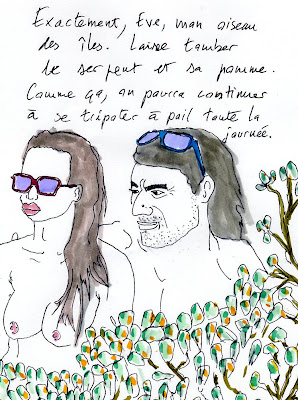 Exactement, Eve, mon oiseau
des îles. Laisse tomber
le serpent et sa pomme.
Comme ça, on pourra continuer
à se tripoter à poil toute la
journée.